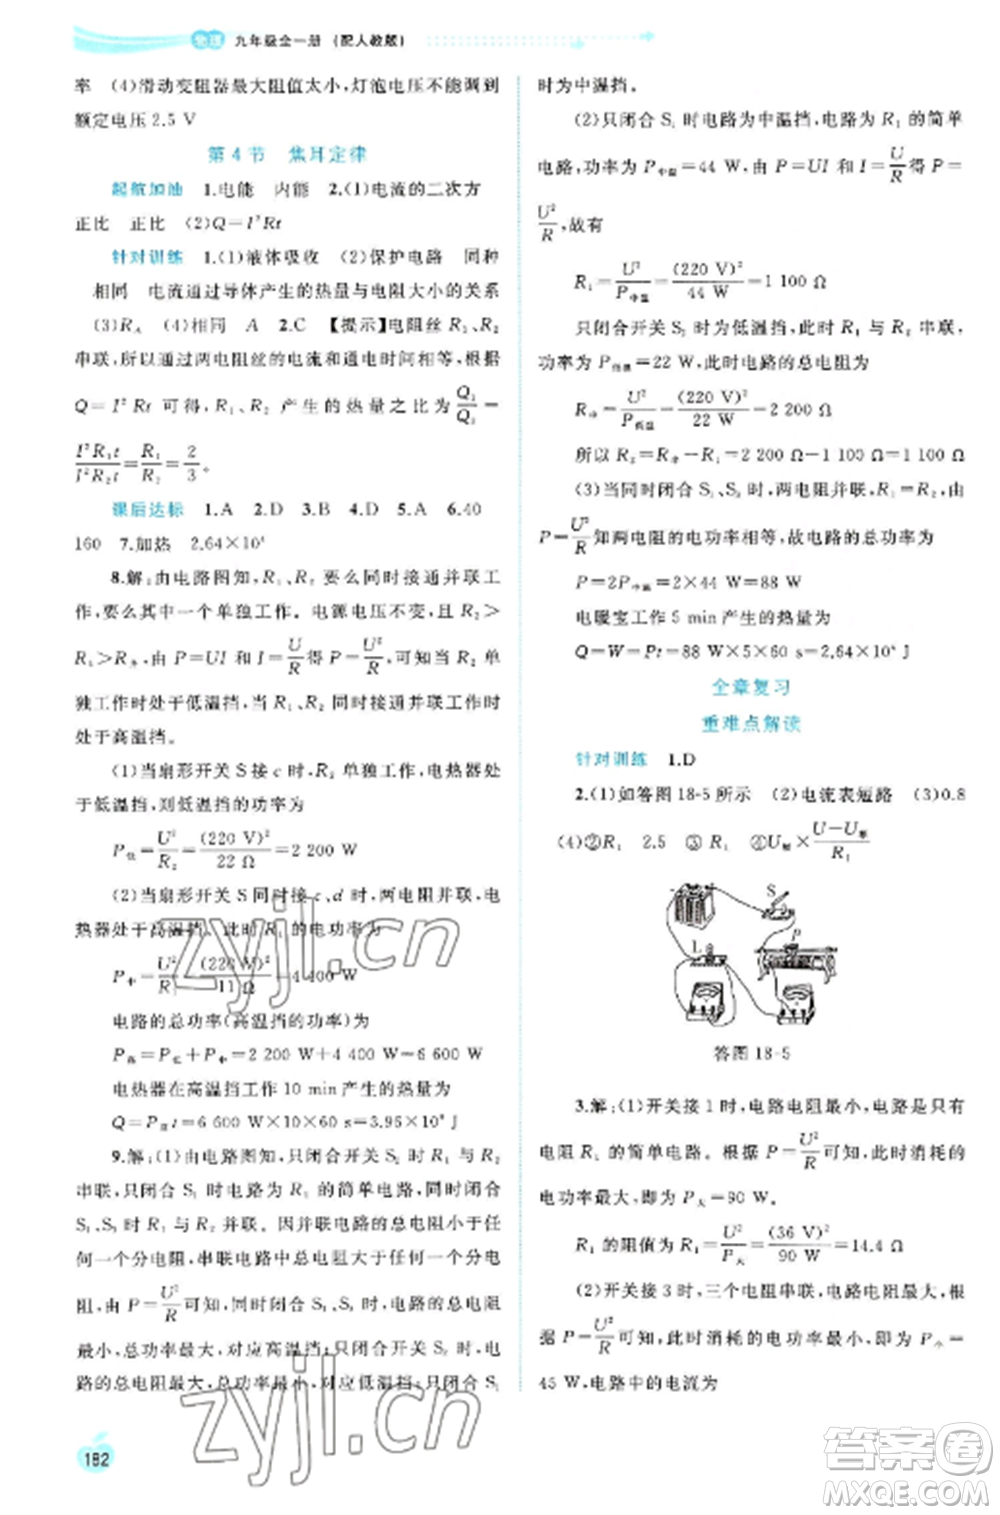 物理 九年级全一册 (配人教版)
率 (4)滑动变阻器最大阻值太小,灯泡电压不能调到
额定电压 2.5 V
第 4 节 焦耳定律
起航加油 1.电能 内能 2.(1)电流的二次方
正比 正比 (2)Q=I²Rt
针对训练 1.(1)液体吸收 (2)保护电路 同种
相同 电流通过导体产生的热量与电阻大小的关系
(3)R大 (4)相同 A 2.C 【提示】电阻丝 R₁、R₂
串联,所以通过两电阻丝的电流和通电时间相等,根据
Q=I²Rt 可得,R₁、R₂ 产生的热量之比为 Q₁/Q₂=
I²R₁t/I²R₂t=R₁/R₂=2/3。
课后达标 1.A 2.D 3.B 4.D 5.A 6.40
160 7.加热 2.64×10⁴
8.解:由电路图知,R₁、R₂ 要么同时接通并联工
作,要么其中一个单独工作。电源电压不变,且 R₂>
R₁>R并,由 P=UI 和 I=U/R得 P=U²/R,可知当 R₂ 单
独工作时处于低温挡,当 R₁、R₂ 同时工作(并联)时
处于高温挡。
(1)当扇形开关 S 接 c 时,R₂ 单独工作,电热器处
于低温挡,则低温挡的功率为
P低=U²/R₂=(220 V)²/22 Ω=2 200 W
(2)当扇形开关 S 同时接 c、d 时,两电阻并联,电
热器处于高温挡。此时 R₁ 的电功率为
P中=U²/R=(220 W)²/11 Ω=4 400 W
电路的总功率(高温挡的功率)为
P高=P低+P中=2 200 W+4 400 W=6 600 W
电热器在高温挡工作 10 min 产生的热量为
Q=P高t=6 600 W×10×60 s=3.96×10⁶ J
9.解:(1)由电路图知,只闭合开关 S₂ 时 R₁ 与 R₂
串联,只闭合 S₁ 时电路为 R₁ 的简单电路,同时闭合
S₁、S₃ 时 R₁ 与 R₂ 并联。因并联电路的总电阻小于任
何一个分电阻,串联电路中总电阻大于任何一个分电
阻,由 P=U²/R可知,同时闭合 S₁、S₃ 时,电路的总电阻
最小,总功率最大,对应高温挡;只闭合开关 S₂ 时,电
路的总电阻最大,总功率最小,对应低温挡;只闭合 S₁
时为中温挡。
(2)只闭合 S₁ 时电路为中温挡,电路为 R₁ 的简单
电路,功率为 P中温=44 W,由 P=UI 和 I=U/R得 P=
U²/R,故有
R₁=U²/P中温=(220 V)²/44 W=1 100 Ω
只闭合开关 S₂ 时为低温挡,此时 R₁ 与 R₂ 串联,
功率为 P低温=22 W,此时电路的总电阻为
R串=U²/P低温=(220 V)²/22 W=2 200 Ω
所以 R₂=R串-R₁=2 200 Ω-1 100 Ω=1 100 Ω
(3)当同时闭合 S₁、S₃ 时,两电阻并联,R₁=R₂,由
P=U²/R知两电阻的电功率相等,故电路的总功率为
P=2P中温=2×44 W=88 W
电暖宝工作 5 min 产生的热量为
Q=W=Pt=88 W×5×60 s=2.64×10⁴ J
全章复习
重难点解读
针对训练 1.D
2.(1)如答图 18-5 所示 (2)电流表短路 (3)0.8
(4)②R₁ 2.5 ③ R₁ ④U额×(U-U额)/R₁
S
L
P
答图 18-5
3.解:(1)开关接 1 时,电路电阻最小,电路是只有
电阻 R₁ 的简单电路。根据 P=U²/R可知,此时消耗的
电功率最大,即为 P大=90 W。
R₁ 的阻值为 R₁=U²/P大=(36 V)²/90 W=14.4 Ω
(2)开关接 3 时,三个电阻串联,电路电阻最大,根
据 P=U²/R可知,此时消耗的电功率最小,即为 P小=
45 W,电路中的电流为
182
zyjl.cn
zyjl.cn
答案圈
MXQE.COM